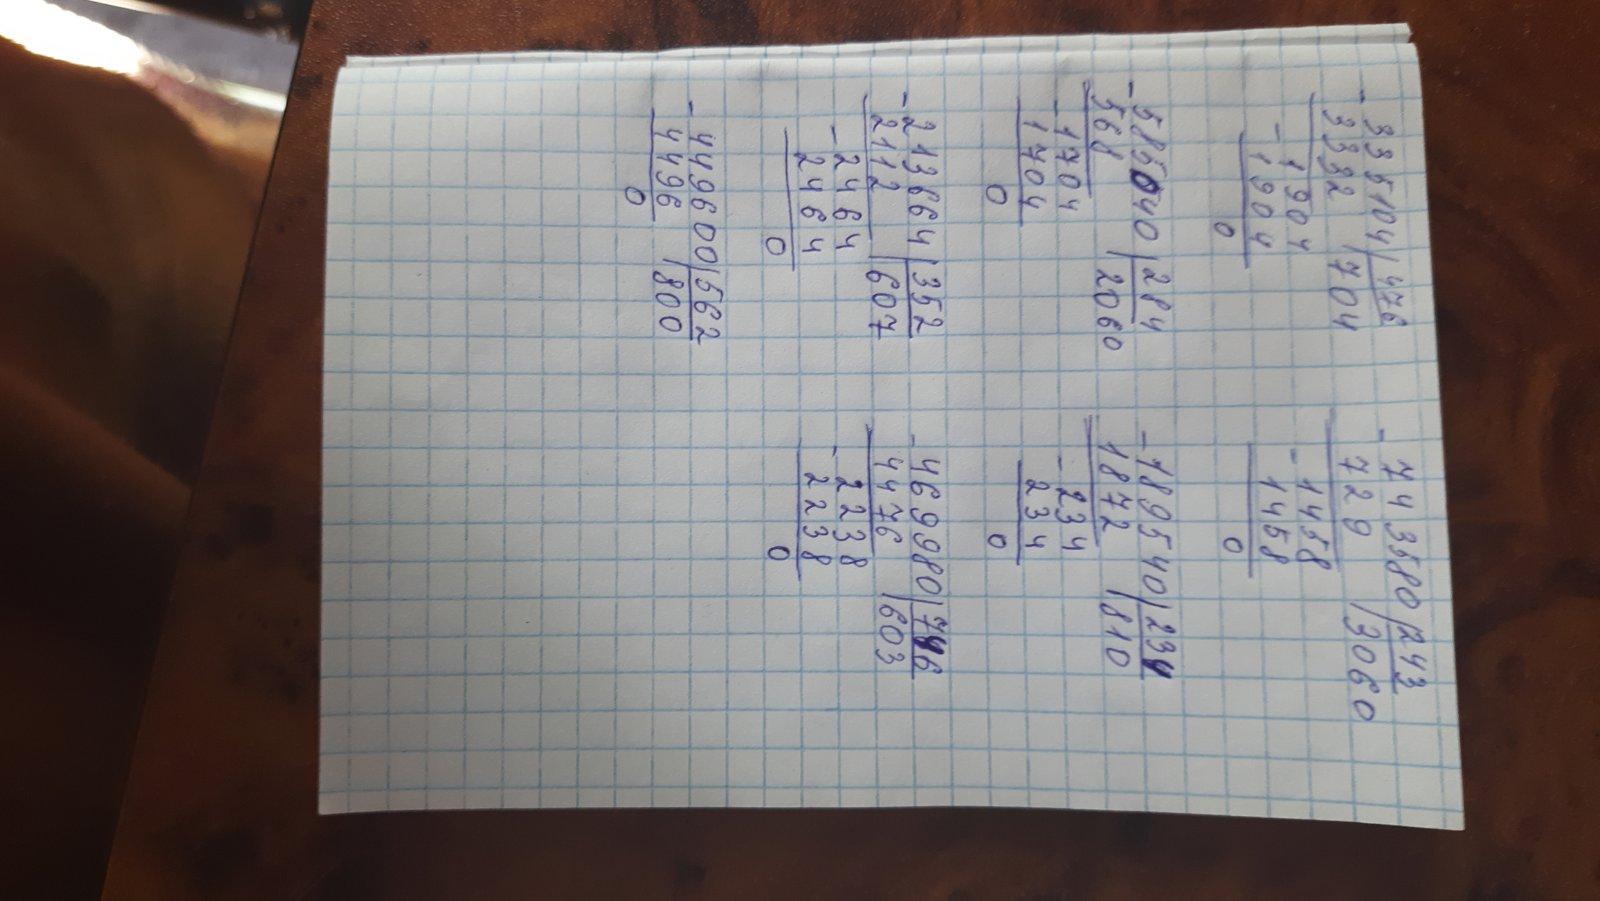 - 335104 | 476
3332 | 704
- 1904
1904
0
- 743580 | 243
729 | 3060
- 1458
1458
0
- 585040 | 284
568 | 2060
- 1704
1704
0
- 189540 | 234
1872 | 810
- 234
234
0
- 213664 | 352
2112 | 607
- 2464
2464
0
- 469980 | 746
4476 | 603
- 2238
2238
0
- 449600 | 562
4496 | 800
0